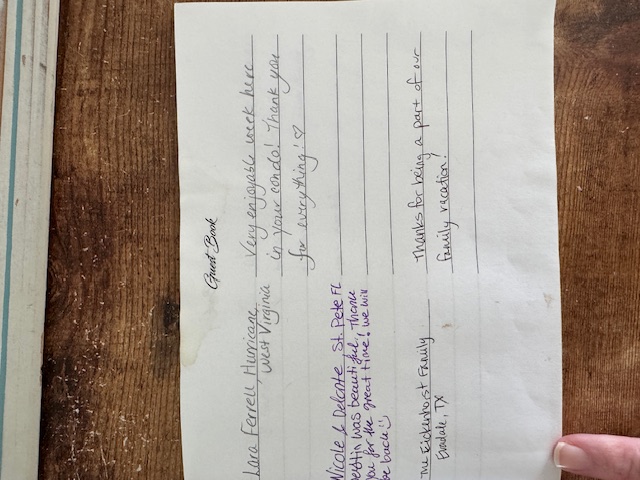 Guest Book
Lara Ferrell Hurricane, West Virginia
Very enjoyable week here
in your condo! Thank you
for everything! ♡
Nicole & St. Pete FL
was beautiful. Thank
you for the great time! We will
be back ☺
The Family
TX
Thanks for being a part of our
family vacation!